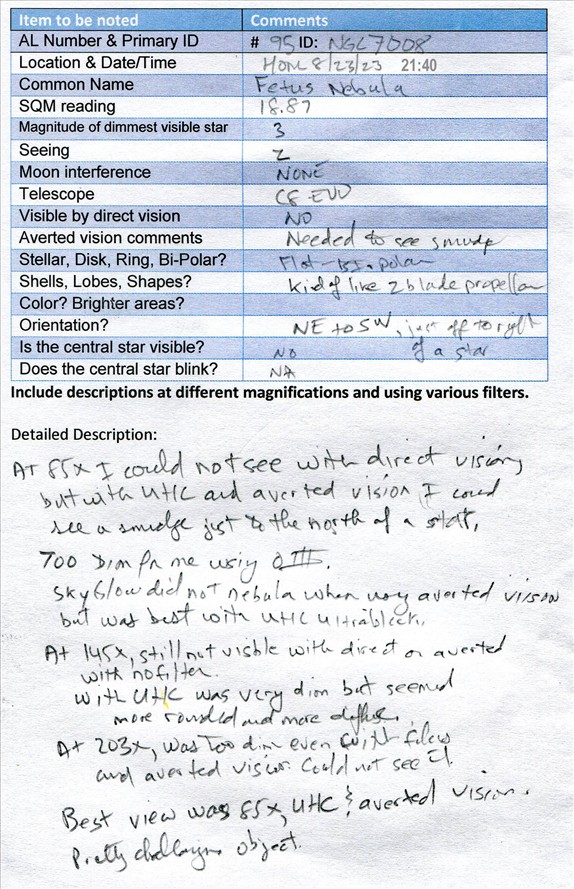 Item to be noted Comments
AL Number & Primary ID # 95 ID: NGC 7008
Location & Date/Time Home 8/23/23 21:40
Common Name Fetus Nebula
SQM reading 18.87
Magnitude of dimmest visible star 3
Seeing 2
Moon interference NONE
Telescope C8 EVO
Visible by direct vision NO
Averted vision comments Needed to see smudge
Stellar, Disk, Ring, Bi-Polar? Flat - BI-polar
Shells, Lobes, Shapes? Kid of like 2 blade propellar
Color? Brighter areas?
Orientation? NE to SW, just off to right
of a star
Is the central star visible? NO
Does the central star blink? NA
Include descriptions at different magnifications and using various filters.
Detailed Description:
At 85x I could not see with direct vision,
but with UHC and averted vision I could
see a smudge just to the north of a star.
Too Dim for me using OIII.
Sky Glow did not nebula when using averted vision
but was best with UHC Ultrablock.
At 145x, still not visible with direct or averted
with no filter.
With UHC was very dim but seemed
more rounded and more diffuse.
At 203x, was too dim even with filters
and averted vision. Could not see it.
Best view was 85x, UHC & averted vision.
Pretty challenging object.